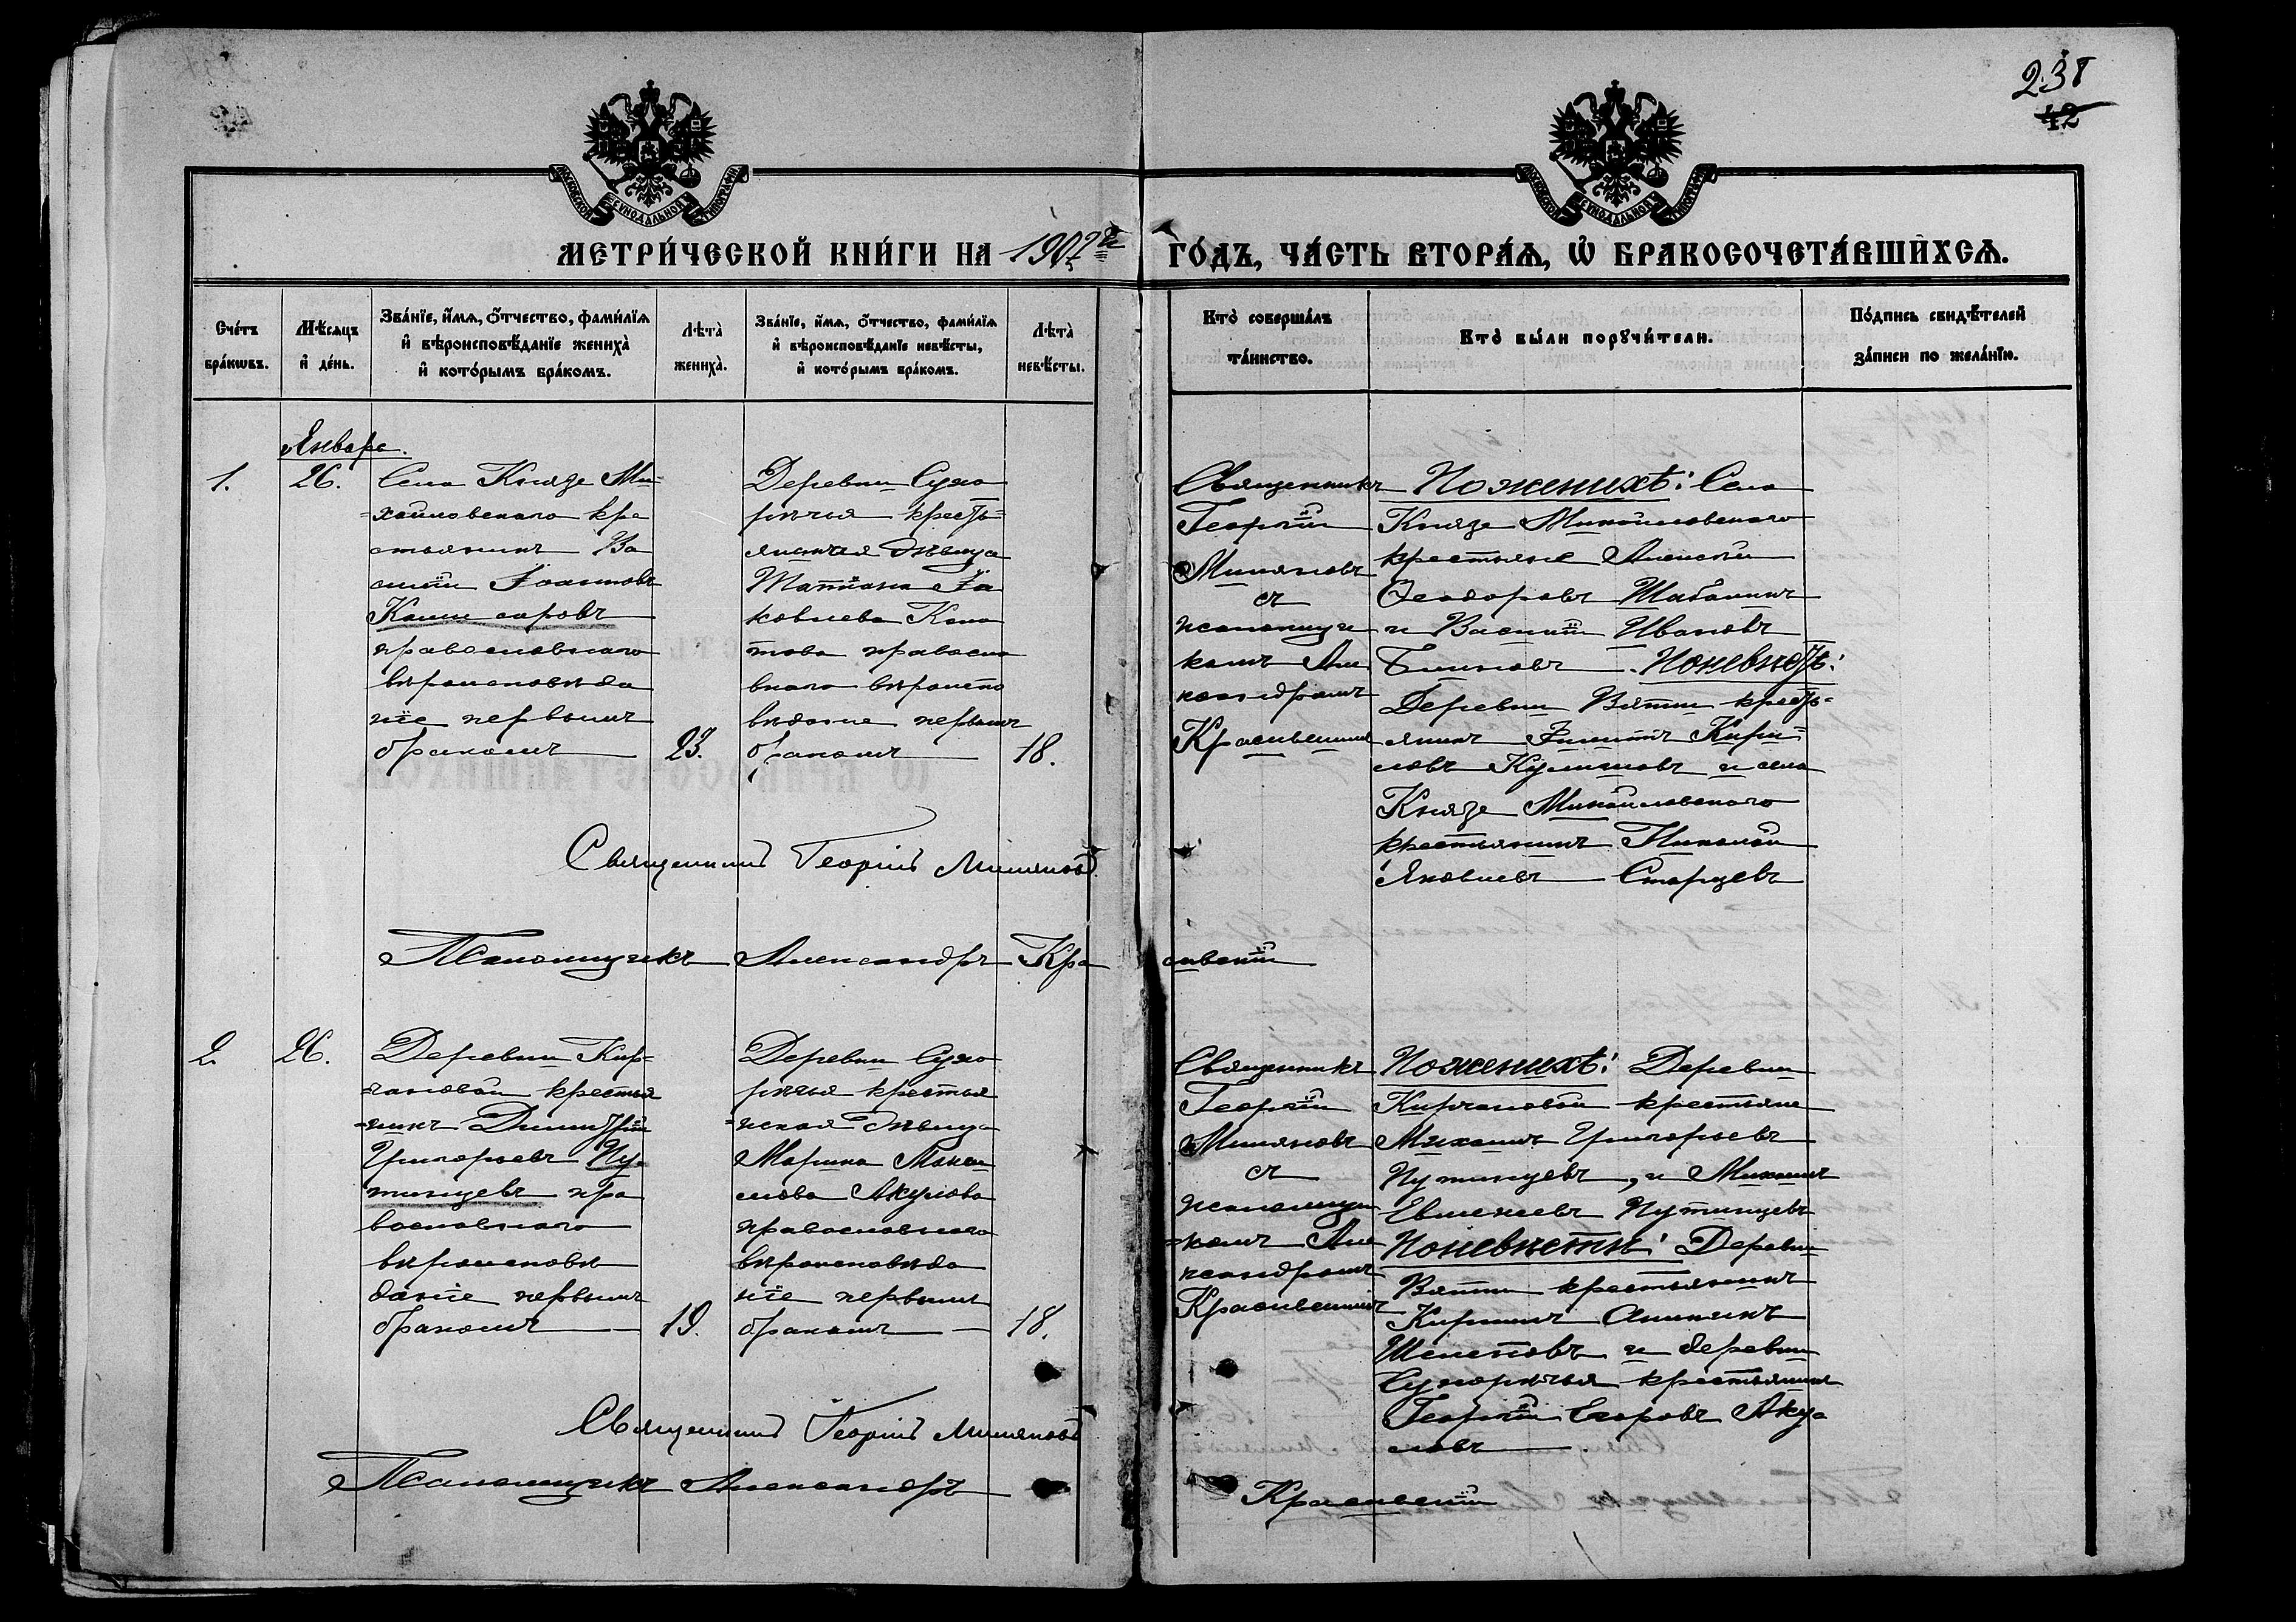 238
42
МОСКОВСКОЙ СѴНОДАЛЬНОЙ ТИПОГРАФІИ
МОСКОВСКОЙ СѴНОДАЛЬНОЙ ТИПОГРАФІИ
МЕТРИ́ЧЕСКОЙ КНИ́ГИ НА 1907й ГО́ДЪ, ЧА́СТЬ ВТОРА́Ѧ, Ѡ҆ БРАКОСОЧЕТА́ВШИХСѦ.
Сче́тъ
бра́кѡвъ.
Мѣ́сяцъ
и҆ де́нь.
Зва́нїе, и҆́мѧ, ѻ҆́тчество, фами́лїѧ
и҆ вѣроисповѣ́данїе жениха̀
и҆ кото́рымъ бра́комъ.
Лѣта̀
жениха̀.
Зва́нїе, и҆́мѧ, ѻ҆́тчество, фами́лїѧ
и҆ вѣроисповѣ́данїе невѣ́сты,
и҆ кото́рымъ бра́комъ.
Лѣта̀
невѣ́сты.
Кто̀ соверша́лъ
та́инство.
Кто̀ бы́ли порꙋчи́тели.
По́дпись свидѣ́телей
за́писи по жела́нїю.
Января.
1.
26.
Села Князе Ми-
=хайловскаго кре
стьянинъ Ва
силій Іоанновъ
православнаго
вѣроисповѣда
ніе первымъ
бракомъ
23.
Деревни Сухо
рѣчья кресть=
янская дѣвица
Татіана Іа
ковлева
това правосла
внаго вѣроиспо
вѣданіе первымъ
бракомъ
18.
Священникъ
Георгій
Миняковъ
съ
псаломщи
комъ Але
ксандромъ
Красивскимъ
По женихѣ: Села
Князе Михайловскаго
крестьяне Алексѣй
Ѳеодоровъ Шабалинъ
и Василій Ивановъ
Блиновъ По невѣстѣ:
Деревни Вятки кресть=
янинъ Филиппъ Кири=
ловъ и села
Князе Михайловскаго
крестьянинъ Николай
Яковлевъ Старцевъ
Священникъ Георгій Миняковъ
Псаломщикъ Александръ Кра
сивскій
2
26.
Деревни Кир=
=чановой крестья
=нинъ Димитрій
Григорьевъ Пу-
тинцевъ пра
вославнаго
вѣроисповѣ
даніе первымъ
бракомъ
19.
Деревни Сухо
рѣчья крестья
=нская дѣвица
Марина Макси
мова Акулова
православнаго
вѣроисповѣда
ніе первымъ
бракомъ
18.
Священникъ
Георгій
Миняковъ
съ
псаломщи
=комъ Але
ксандромъ
Красивскимъ
По женихѣ: Деревни
Кирчановой крестьяне
Михаилъ Григорьевъ
Путинцевъ, и Михаилъ
Евгеніевъ Путинцевъ
По невѣстѣ: Деревни
Вятки крестьянинъ
Кириллъ
Шелеповъ и деревни
Сухорѣчья крестьянинъ
Георгій Егоровъ Аку
ловъ
Священникъ Георгій Миняковъ
Псаломщикъ Александръ
Красивскій